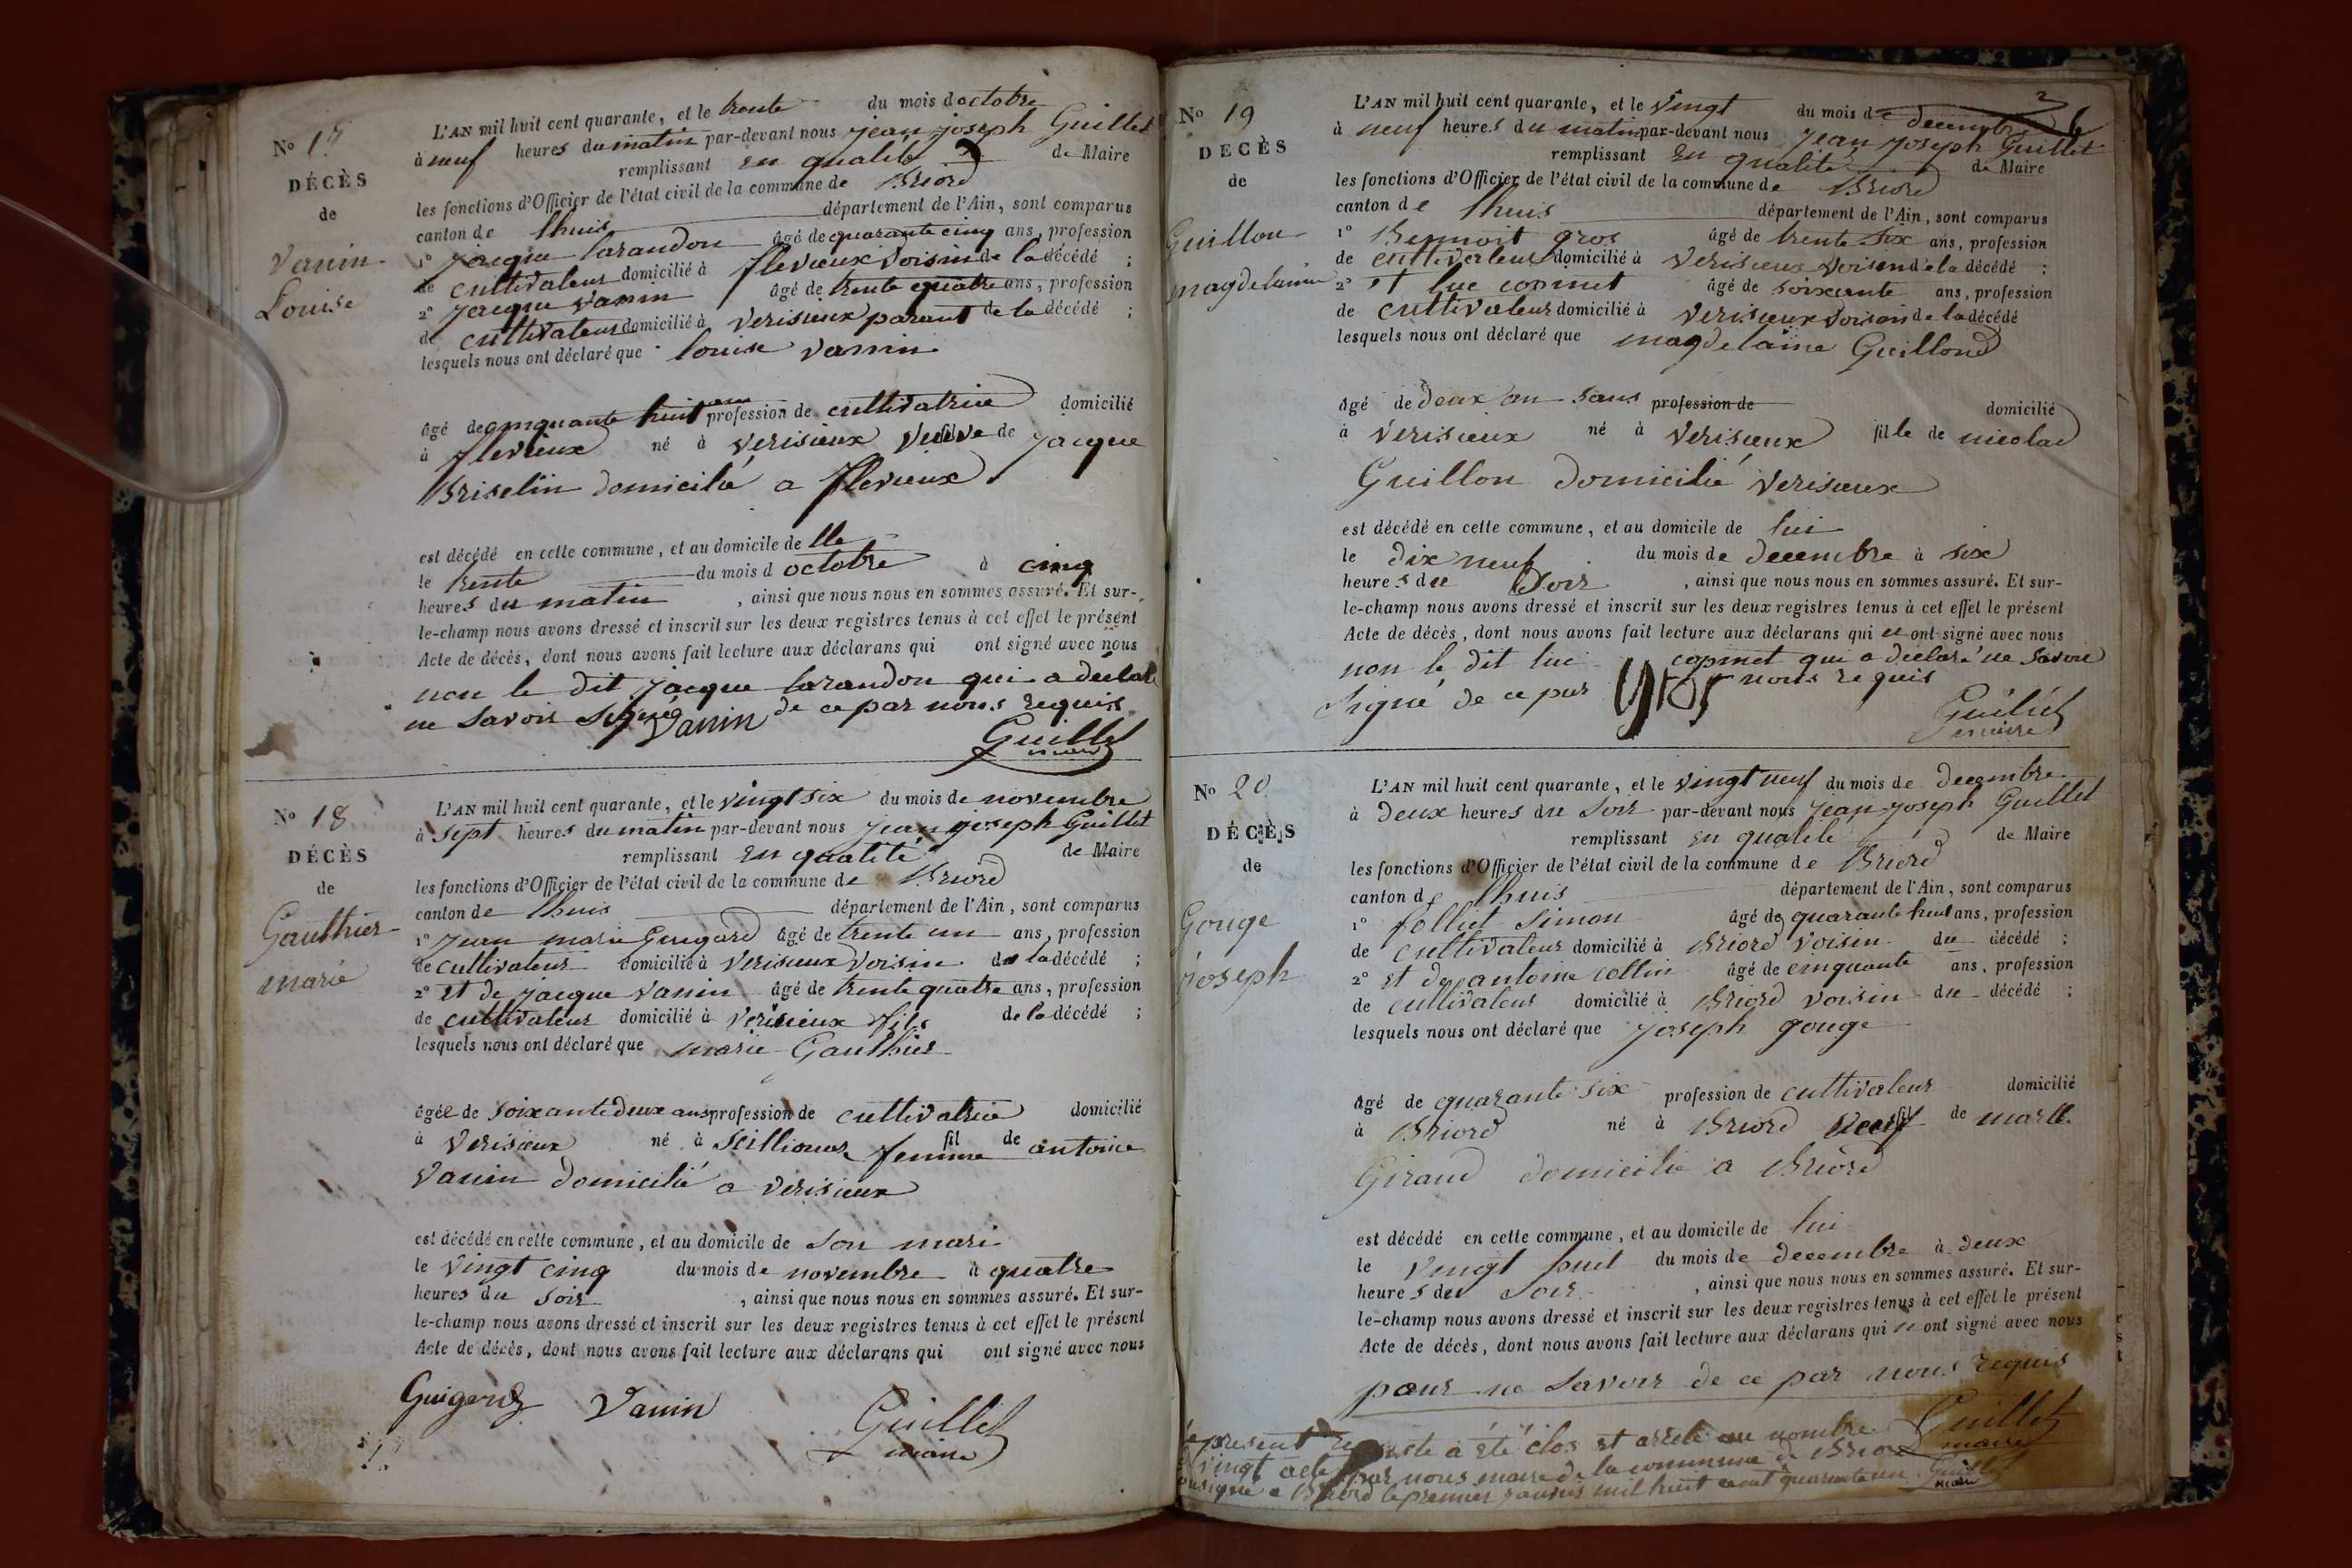 No 17
DÉCÈS
de
Vanin
Louise
L'AN mil huit cent quarante, et le trente du mois d octobre
à neuf heures du matin par-devant nous jean joseph Guillet
remplissant en qualité de Maire
les fonctions d'Officier de l'état civil de la commune de Briord
canton de lhuis département de l'Ain, sont comparus
1° jacque larandon âgé de quarante cinq ans, profession
de cultivateur domicilié à flevieux voisin de la décédé ;
2° jacque vanin âgé de trente quatre ans, profession
de cultivateur domicilié à verisieux parant de la décédé ;
lesquels nous ont déclaré que louise vanin
âgé de cinquante huit ans profession de cultivatrice domicilié
à flevieux né à verisieux veuve fil de jacque
Briselin domicilié a flevieux
est décédé en cette commune, et au domicile de lle
le trente du mois d octobre à cinq
heures du matin , ainsi que nous nous en sommes assuré. Et sur-
le-champ nous avons dressé et inscrit sur les deux registres tenus à cet effet le présent
Acte de décès, dont nous avons fait lecture aux déclarans qui ont signé avec nous
non le dit jacque larandon qui a déclaré
ne savoir signé de ce par nous requis
Vanin
Guillet
maire
No 18
DÉCÈS
de
Gauthier
marie
L'AN mil huit cent quarante, et le vingt six du mois de novembre
à sept heures du matin par-devant nous jean joseph Guillet
remplissant en qualité de Maire
les fonctions d'Officier de l'état civil de la commune de Briord
canton de lhuis département de l'Ain, sont comparus
1° jean marie Guigard âgé de trente un ans, profession
de cultivateur domicilié à verisieux voisin de la décédé ;
2° et de jacque vanin âgé de trente quatre ans, profession
de cultivateur domicilié à verisieux fils de la décédé ;
lesquels nous ont déclaré que marie Gauthier
âgée de soixante deux ans profession de cultivatrice domicilié
à verisieux né à femme fil de antoine
vanin domicilié a verisieux
est décédé en cette commune, et au domicile de son mari
le vingt cinq du mois de novembre à quatre
heures du soir , ainsi que nous nous en sommes assuré. Et sur-
le-champ nous avons dressé et inscrit sur les deux registres tenus à cet effet le présent
Acte de décès, dont nous avons fait lecture aux déclarans qui ont signé avec nous
Guigard Vanin Guillet
maire
No 19
DECÈS
de
Guillon
magdelaine
2
L'AN mil huit cent quarante, et le vingt du mois de decembre
à neuf heures du matin par-devant nous jean joseph Guillet
remplissant en qualité de Maire
les fonctions d'Officier de l'état civil de la commune de Briord
canton de lhuis département de l'Ain, sont comparus
1° Bennoit gros âgé de trente six ans, profession
de cultivateur domicilié à verisieux voisin de la décédé ;
2° et luc copinet âgé de soixante ans, profession
de cultivateur domicilié à verisieux voisin de la décédé
lesquels nous ont déclaré que magdelaine Guillond
âgé de deux an sans profession de domicilié
à verisieux né à verisieux fille de nicolad
Guillon domicilié verisieux
est décédé en cette commune, et au domicile de lui
le dix neuf du mois de decembre à six
heures du soir , ainsi que nous nous en sommes assuré. Et sur-
le-champ nous avons dressé et inscrit sur les deux registres tenus à cet effet le présent
Acte de décès, dont nous avons fait lecture aux déclarans qui ont signé avec nous
non le dit luc copinet qui a déclaré ne savoir
signé de ce par nous requis
gros
Guillet
maire
No 20
DÉCÈS
de
Gouge
joseph
L'AN mil huit cent quarante, et le vingt neuf du mois de decembre
à deux heures du soir par-devant nous jean joseph Guillet
remplissant en qualité de Maire
les fonctions d'Officier de l'état civil de la commune de Briord
canton de lhuis département de l'Ain, sont comparus
1° folliet simon âgé de quarante huit ans, profession
de cultivateur domicilié à Briord voisin du décédé ;
2° et de antoine collin âgé de cinquante ans, profession
de cultivateur domicilié à Briord voisin du décédé ;
lesquels nous ont déclaré que joseph gouge
âgé de quarante six profession de cultivateur domicilié
à Briord né à Briord veuf fil de
Giraud domicilié a Briord
est décédé en cette commune, et au domicile de lui
le vingt huit du mois de decembre à deux
heures du soir , ainsi que nous nous en sommes assuré. Et sur-
le-champ nous avons dressé et inscrit sur les deux registres tenus à cet effet le présent
Acte de décès, dont nous avons fait lecture aux déclarans qui n ont signé avec nous
pour ne savoir de ce par nous requis
Guillet
maire
le present registre a été clos et arreté au nombre
de vingt acte par nous maire de la commune de Briord
sousigné a Briord le premier janvier mil huit cent quarante un Guillet
maire